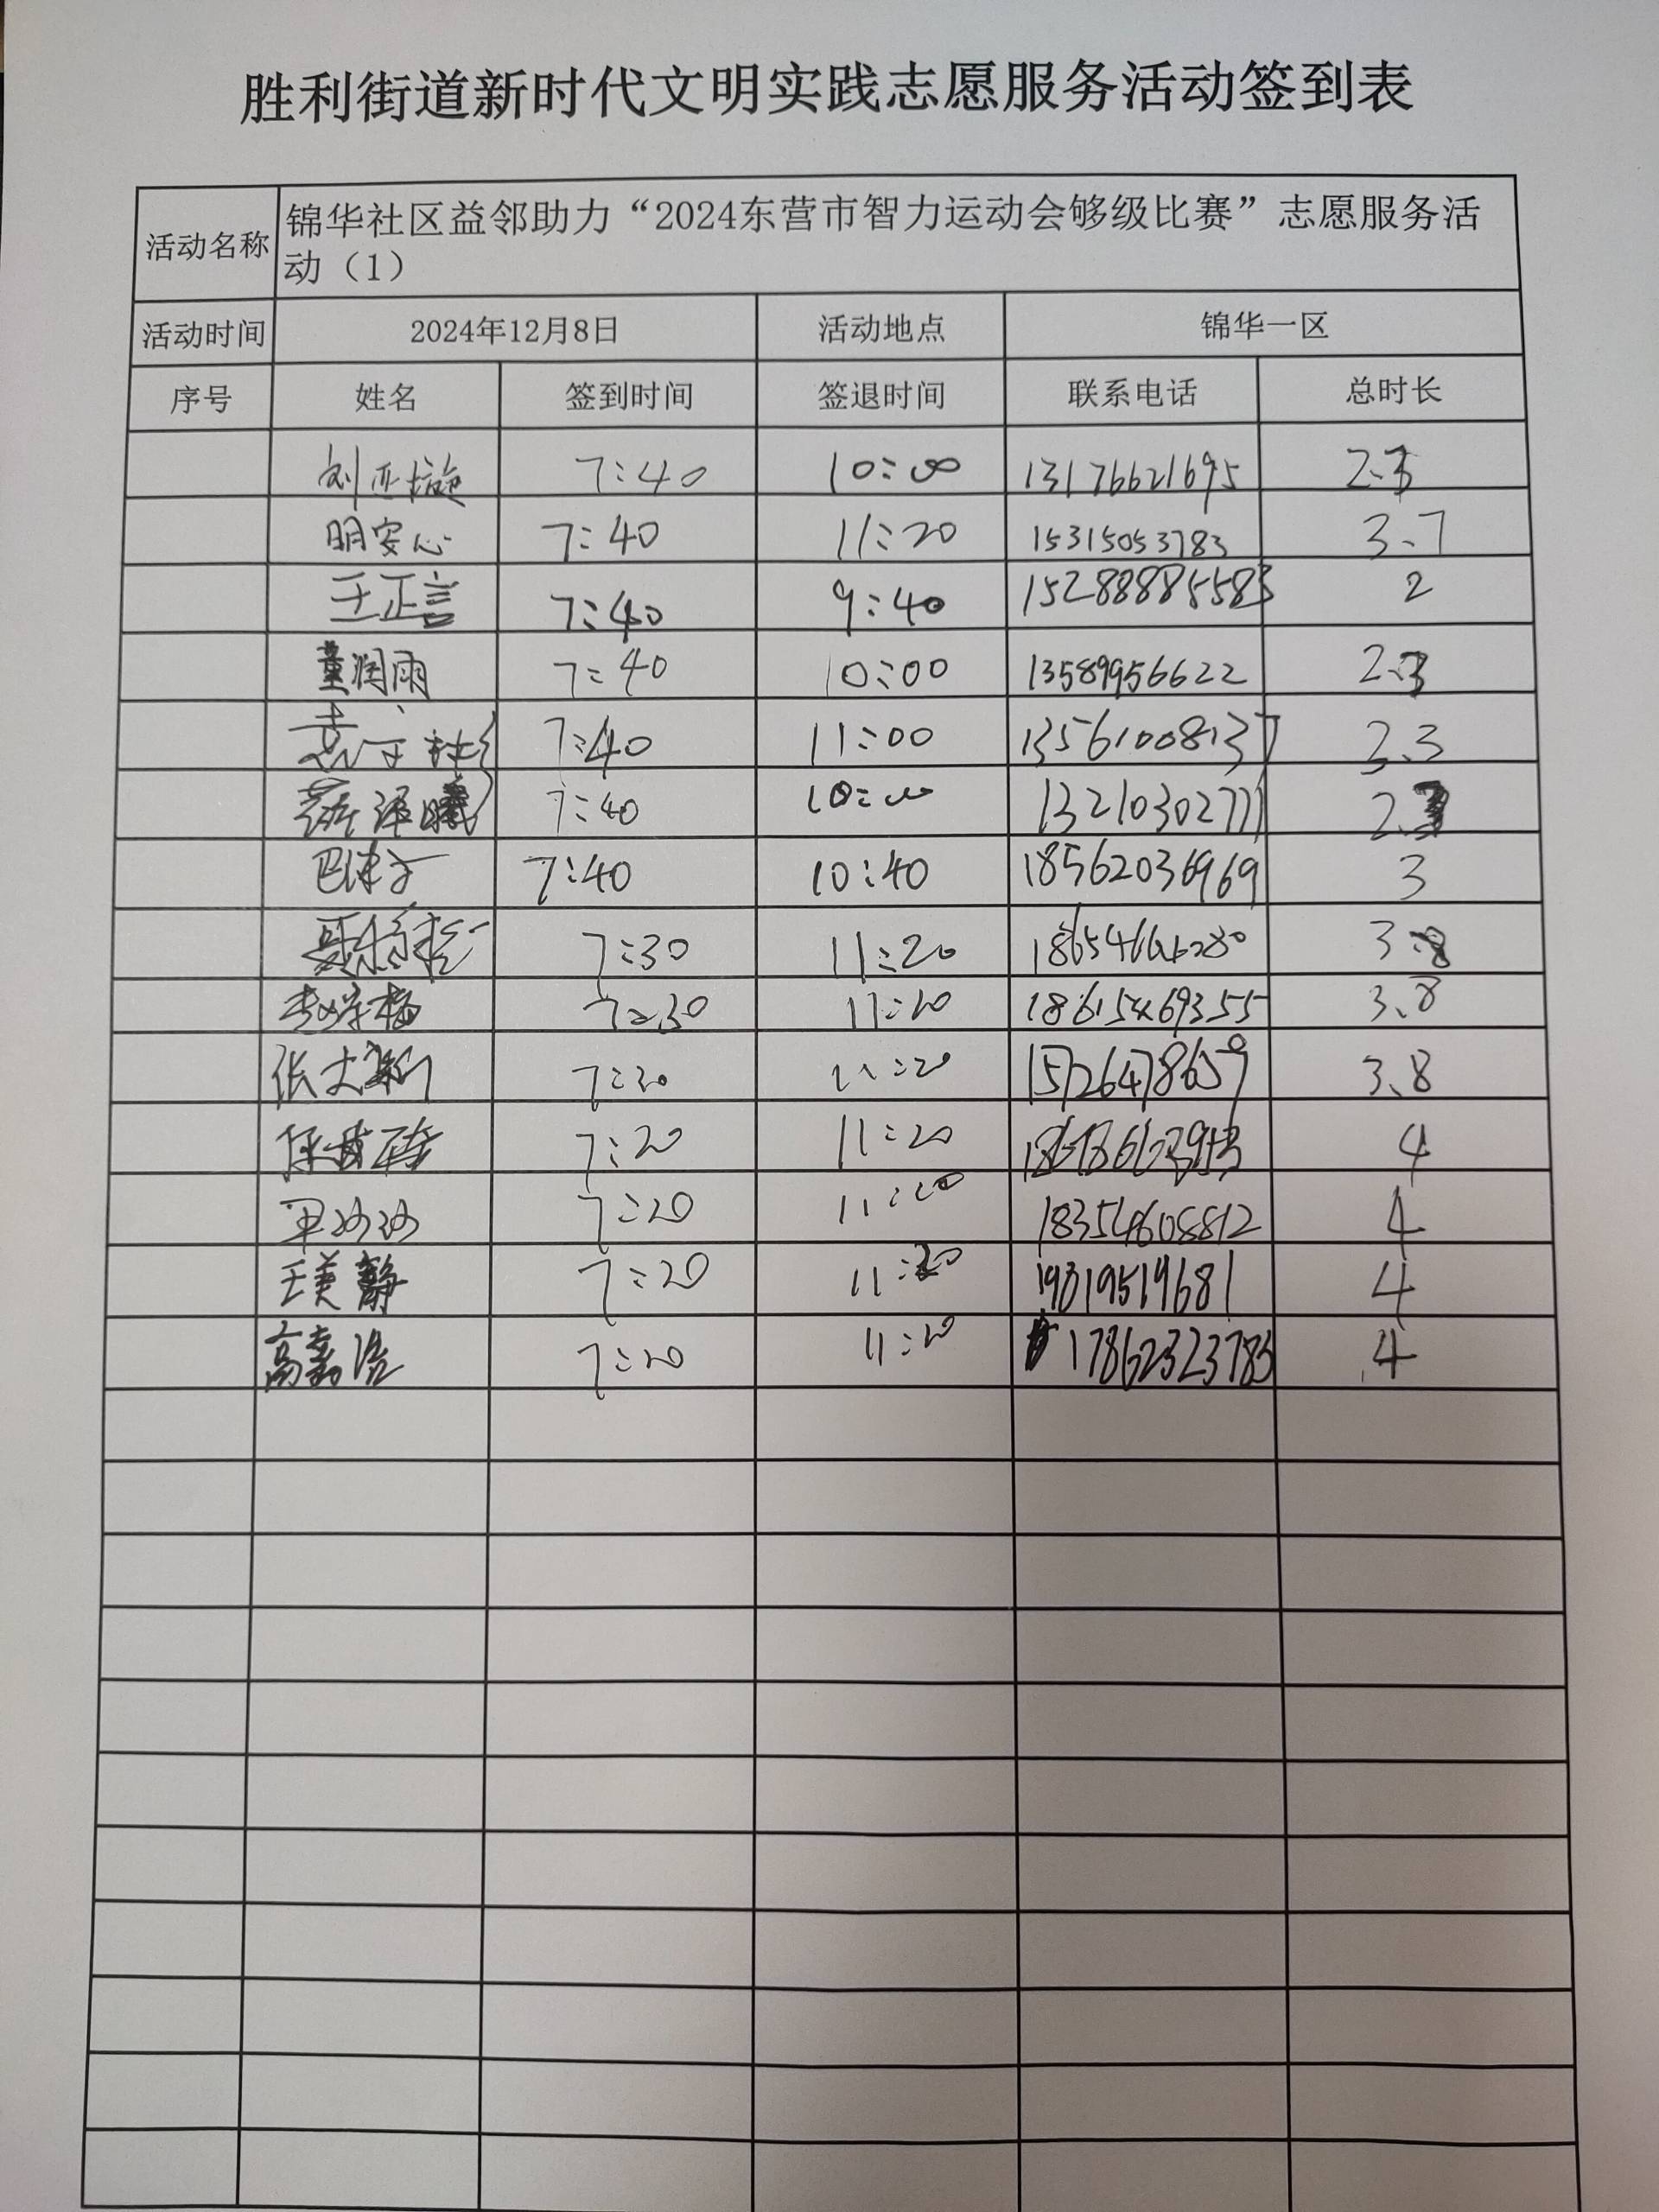 胜利街道新时代文明实践志愿服务活动签到表
活动名称 锦华社区益邻助力“2024东营市智力运动会够级比赛”志愿服务活
动（1）
活动时间 2024年12月8日 活动地点 锦华一区
序号 姓名 签到时间 签退时间 联系电话 总时长
刘亚璇 7:40 10:00 13176621695 2.3
明安心 7:40 11:20 15315053783 3.7
王正言 7:40 9:40 15288885583 2
董润雨 7:40 10:00 13589956622 2.3
袁子 7:40 11:00 13561008137 2.3
薛泽曦 7:40 10:00 13210302711 2.3
巴津子 7:40 10:40 18562036969 3
7:30 11:20 3.8
7:30 11:20 18615469355 3.8
张文 7:30 11:20 15726478659 3.8
7:20 11:20 4
7:20 11:20 18354608812 4
王美静 7:20 11:20 19819519681 4
高嘉浩 7:20 11:20 17862323783 4